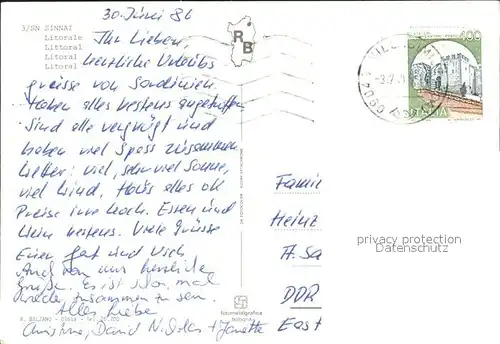 30. Juni 86
3/SN SINNAI
Litorale
Littoral
Littoral
Litoral
Ihr Lieben,
herzliche Urlaubs
grüsse von Sardinien
haben alles bestens angetroffen
Sind alle vergnügt und
haben viel Spass zusammen
Wetter: viel, sehr viel Sonne,
viel Wind, Haus alles ok
Preise irre hoch. Essen und
Wein bestens. Viele Grüsse
Eure
und
Auch von mir herzliche
Grüße. Es ist schön, mal
wieder zusammen zu sein.
Alles Liebe
Christine, David + Janette
RB
400
ITALIA
Famil
Heinz
A. Sa
DDR
East
privacy protection
Datenschutz
fotomeldgrafica
bolzano